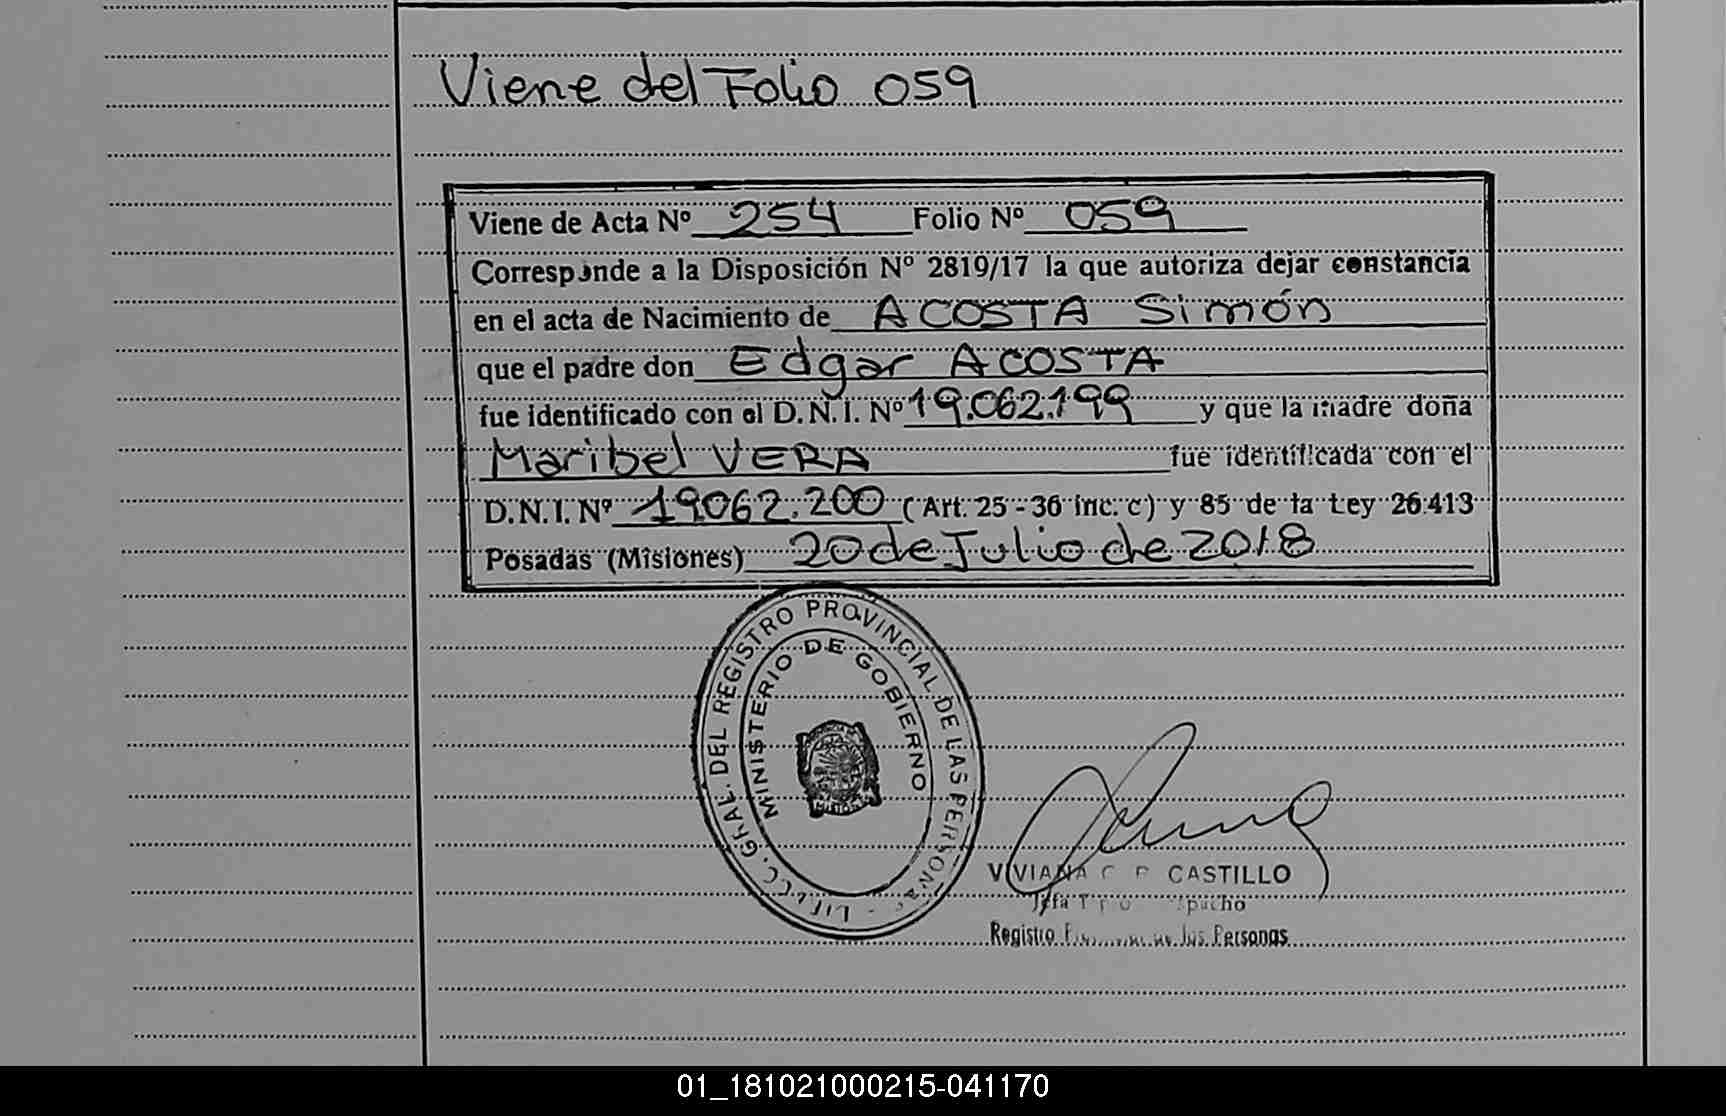 Viene del Folio 059
Viene de Acta Nº 254 Folio Nº 059
Corresponde a la Disposición Nº 2819/17 la que autoriza dejar constancia
en el acta de Nacimiento de ACOSTA Simón
que el padre don Edgar ACOSTA
fue identificado con el D.N.I. Nº 19.062.199 y que la madre doña
Maribel VERA fue identificada con el
D.N.I. Nº 19.062.200 (Art. 25 - 36 inc. c) y 85 de la Ley 26.413
Posadas (Misiones) 20 de Julio de 2018
GRAL. DEL REGISTRO PROVINCIAL DE LAS PERSONAS
MINISTERIO DE GOBIERNO
VIVIANA CASTILLO
Jefa
Registro de las Personas
01_181021000215-041170